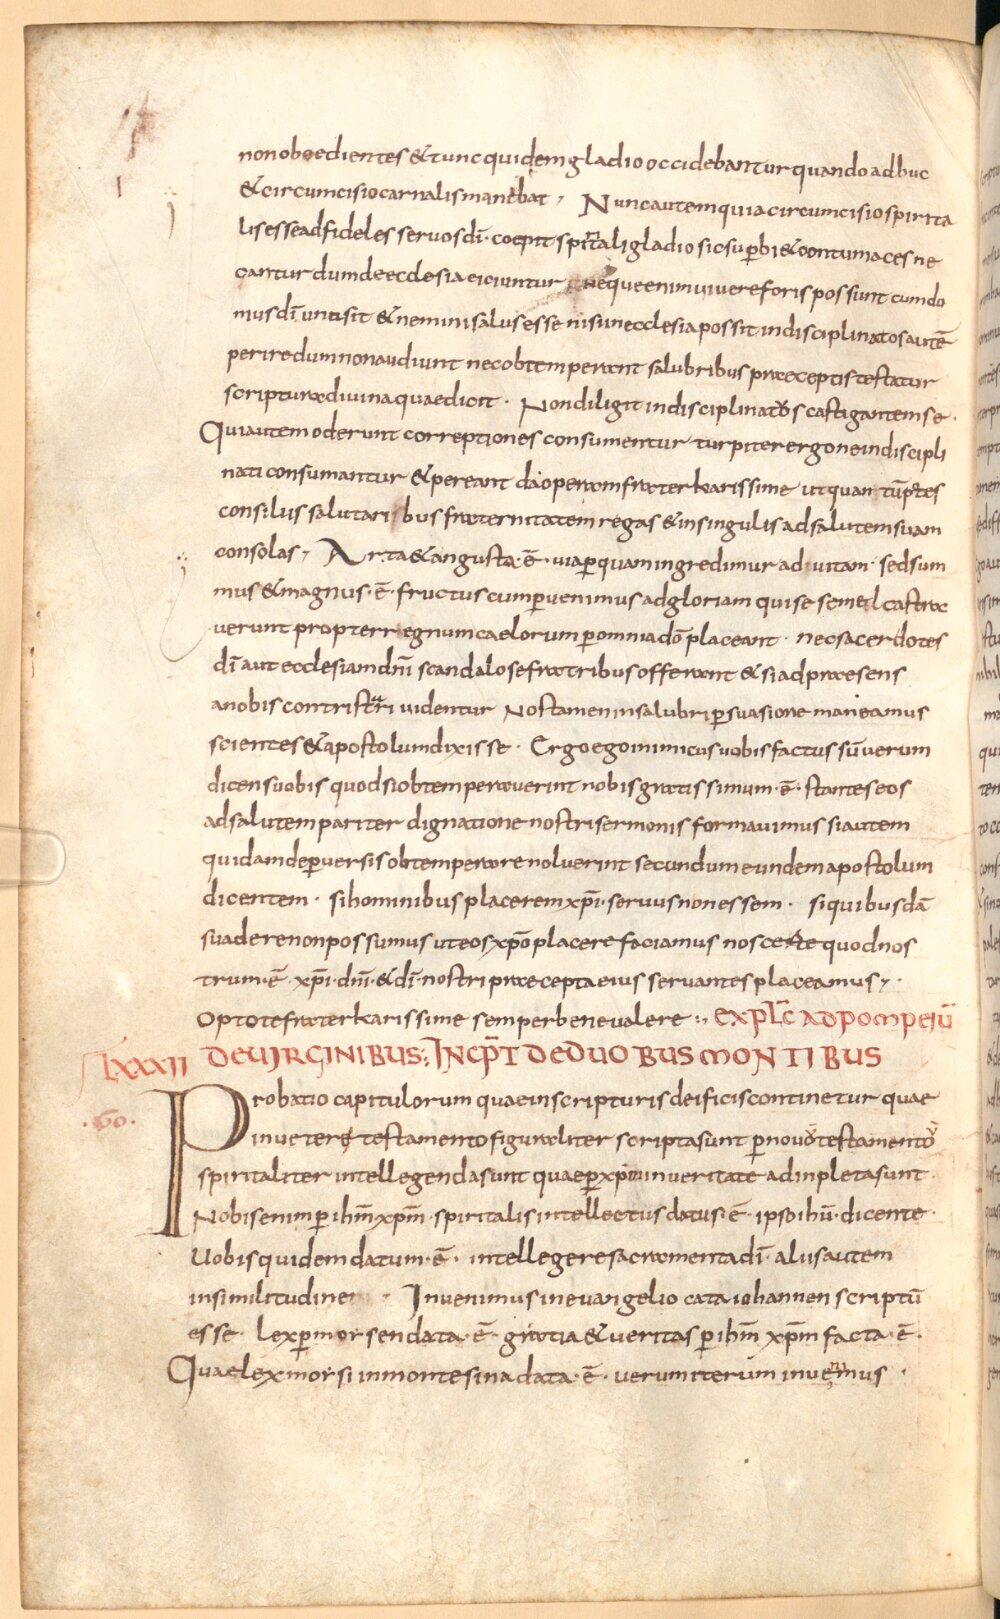 non oboedientes & tunc quidem gladio occidebantur quando adhuc
& circumcisio carnalis manebat, Nunc autem quia circumcisio spirita
lis esse ad fideles servos dī· coepit spiritali gladio sic supbi & contumaces ne
cantur dum de ecclesia eiciuntur neque enim vivere foris possunt cum do
mus dī una sit & nemini salus esse nisi in ecclesia possit indisciplinatos autē
perire dum non audiunt nec obtemperant salubribus praeceptis testatur
scriptura divina quae dicit · Non diligit indisciplinatus castigantem se ·
Qui autem oderunt correptiones consumentur turpiter ergo ne indiscipli
nati consumantur & pereant da operam frater karissime ut quantū potes
consiliis salutaribus fraternitatem regas & in singulis ad salutem suam
consolas, Arta & angusta · ē · via p quam ingredimur ad vitam · sed sum
mus & magnus · ē · fructus cum pvenimus ad gloriam qui se semel castra
verunt propter regnum caelorum p omnia dō placeant · nec sacerdotes
dī aut ecclesiam dnī scandalose fratribus offerant & si ad praesens
a nobis contristari videntur Nos tamen in salubri psuasione maneamus
scientes & apostolum dixisse · Ergo ego inimicus vobis factus sū verum
dicens vobis quod si obtemperaverint nobis gratissimum · ē · stantes eos
ad salutem pariter dignatione nostri sermonis formavimus si autem
quidam de pversis obtemperare noluerint secundum eundem apostolum
dicentem · si hominibus placerem xpī · servus non essem · si quibusdā
suadere non possumus ut eos xpō placere faciamus nos certe quod nos
trum · ē · xpī · dnī · & dī · nostri praecepta eius servantes placeamus, ·
Opto te frater karissime semper bene valere :, EXPLC̄ AD POMPEIŪ
LXXXII DE VIRGINIBUS: INCP̄T DE DUOBUS MONTIBUS
· 60 · Probatio capitulorum quae in scripturis deificis continetur quae
in veter testamento figuraliter scripta sunt p novo testamento
spiritaliter intellegenda sunt quae p xpm in veritate adinpleta sunt ·
Nobis enim p ihm̄ xpm̄ · spiritalis intellectus datus · ē · ipso ihū · dicente ·
Vobis quidem datum · ē · intellegere sacramenta dī · aliis autem
in similitudine · Invenimus in evangelio cata iohannen scriptū
esse · lex p morsen data · ē · gratia & veritas p ihm̄ xpm̄ facta · ē ·
Quae lex morsi in monte sina data · ē · verum iterum invenimus ·